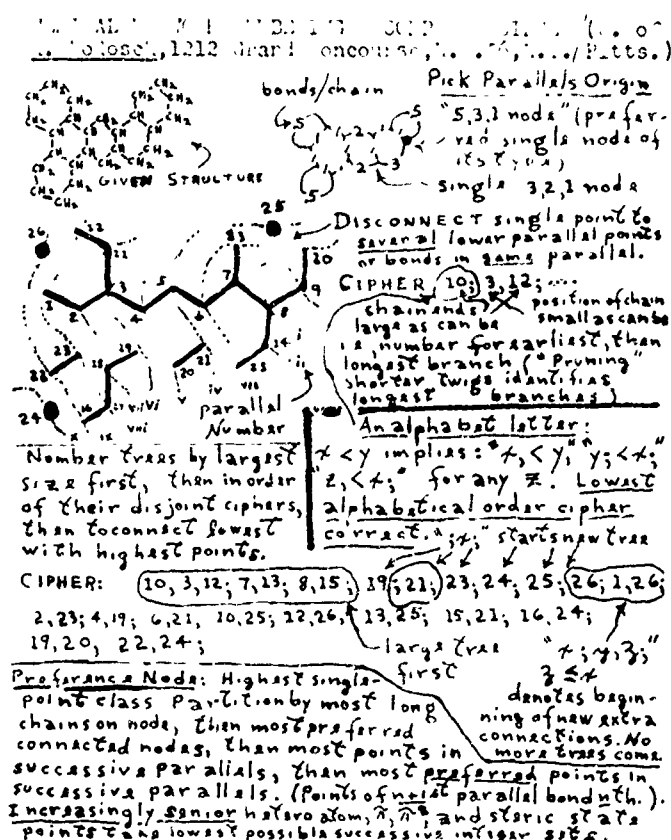 1212 Grand Concourse, Pitts.)
bonds/chain
Pick Parallels Origin
"5,3,1 node" (prefer-
red single node of
its type)
single 3,2,1 node
GIVEN STRUCTURE
DISCONNECT single point to
several lower parallel points
or bonds in same parallel.
CIPHER 10; 3,12; ...
chain ends, large as can be
position of chain small as can be
i.e., number for earliest, then
longest branch ("Pruning"
shorter twigs identifies
longest branches)
parallel
Number
Number trees by largest
size first, then in order
of their disjoint ciphers,
then to connect lowest
with highest points.
An alphabet letter:
x < y implies: "x, < y," "y; < x;"
"z, < x;" for any z. Lowest
alphabetical order cipher
correct. ";x;" starts new tree
CIPHER: 10, 3,12; 7,13; 8,15; 19; 21; 23; 24; 25; 26; 1,26;
2,23; 4,19; 6,21, 10,25; 12,26; 13,25; 15,21; 16,24;
19,20, 22,24;
large tree
first
"x; y, z;"
z ≤ x
denotes begin-
ning of new extra
connections. No
more trees come.
Preference Node: Highest single-
point class Partition by most long
chains on node, then most preferred
connected nodes, then most points in
successive parallels, then most preferred points in
successive parallels. (Points of n+1st parallel bond nth.)
Increasingly senior hetero atom, and steric state
points take lowest possible successive integer sets.